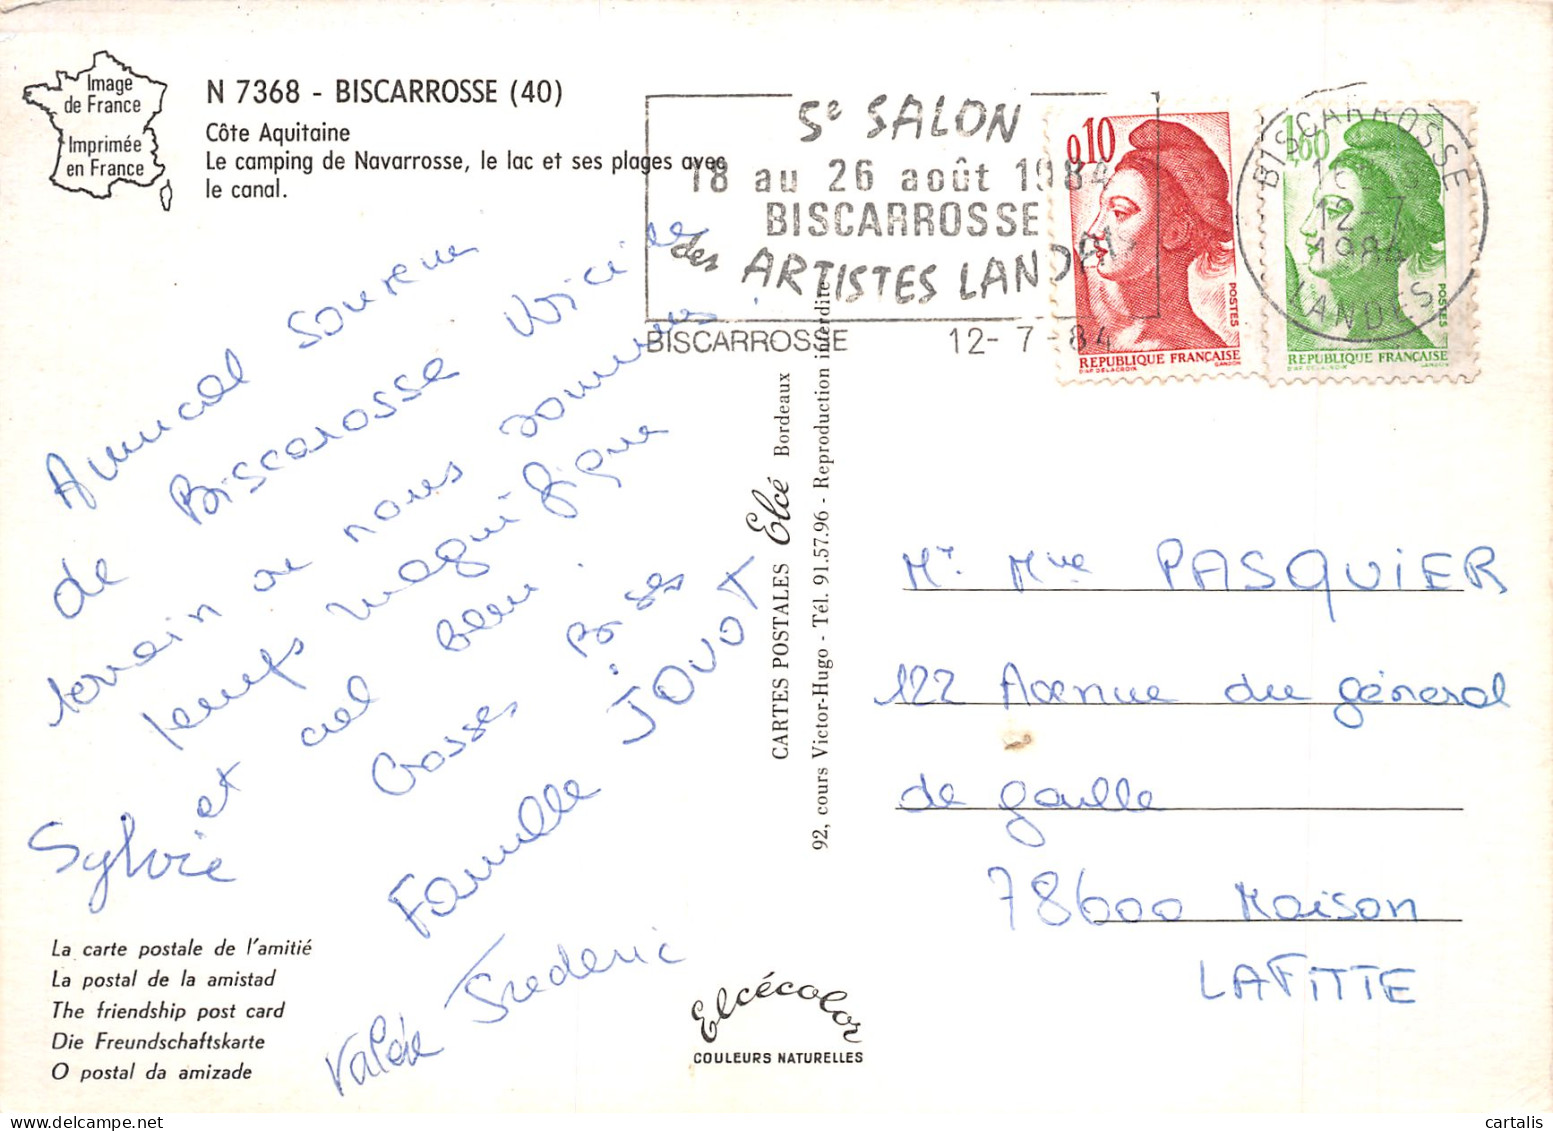 Image
de France
Imprimée
en France
N 7368 - BISCARROSSE (40)
Côte Aquitaine
Le camping de Navarrosse, le lac et ses plages avec
le canal.
5e SALON
18 au 26 août 1984
BISCARROSSE
des ARTISTES LANDAIS
BISCARROSSE 12-7-84
0,10
POSTES
REPUBLIQUE FRANÇAISE
D'AP. DELACROIX GANDON
1,60
POSTES
REPUBLIQUE FRANÇAISE
D'AP. DELACROIX GANDON
BISCARROSSE
12-7
1984
LANDES
Amical souvenir
de Biscarosse Voici le
terrain ou nous sommes.
temps magnifique
et ciel bleu.
Grosses Bises
Famille JOUOT
Sylvie
Valérie Frederic
CARTES POSTALES Elcé Bordeaux
92, cours Victor-Hugo - Tél. 91.57.96 - Reproduction interdite
Mr. Mme PASQUIER
122 Avenue du général
de gaulle
78600 Maison
LAFITTE
La carte postale de l'amitié
La postal de la amistad
The friendship post card
Die Freundschaftskarte
O postal da amizade
Elcécolor
COULEURS NATURELLES
cartalis